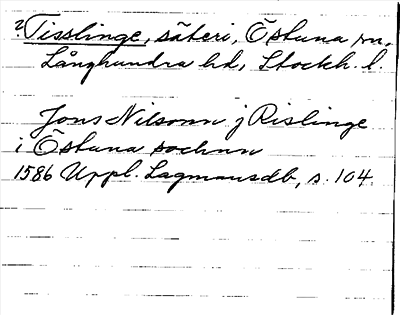 ? Tisslinge, säteri, Östuna sn,
Långhundra hd, Stockh. l.
Jons Nilsonn j Rislinge
i Östuna sochnn
1586 Uppl. Lagmansdb, s. 104.